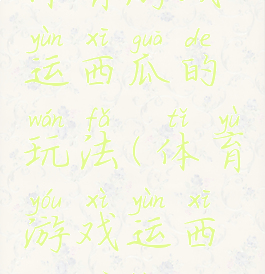 yùn xī guā de
运西瓜的
wán fǎ tǐ yù
玩法(体育
yóu xì yùn xī
游戏运西